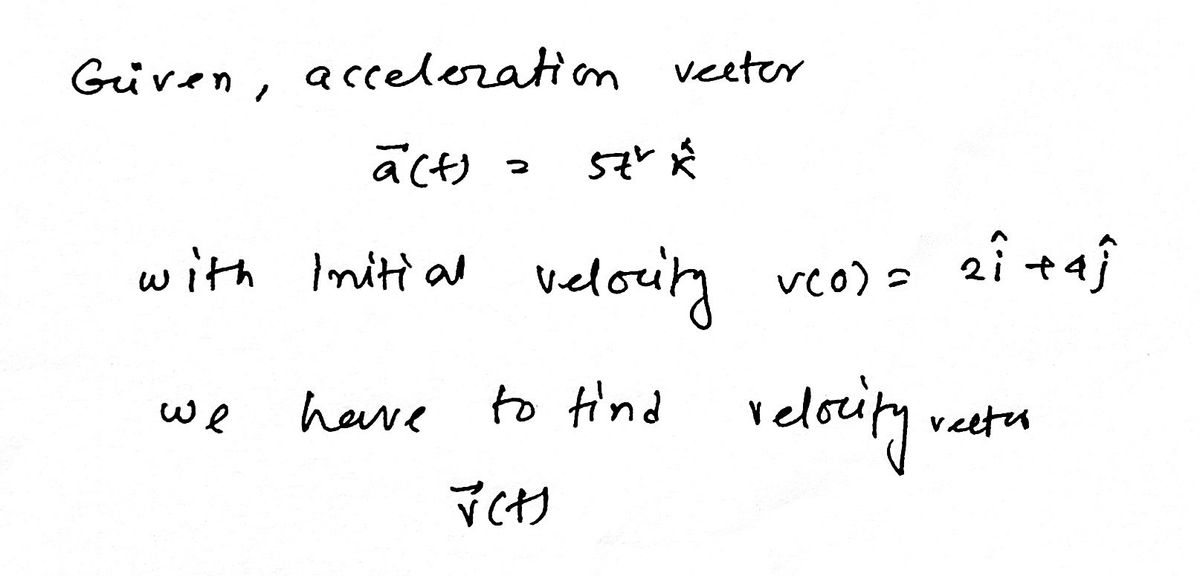 Given, acceleration vector
a⃗(t) = 5t² k̂
with Initial velocity v(0) = 2î + 4ĵ
we have to find velocity vector
v⃗(t)